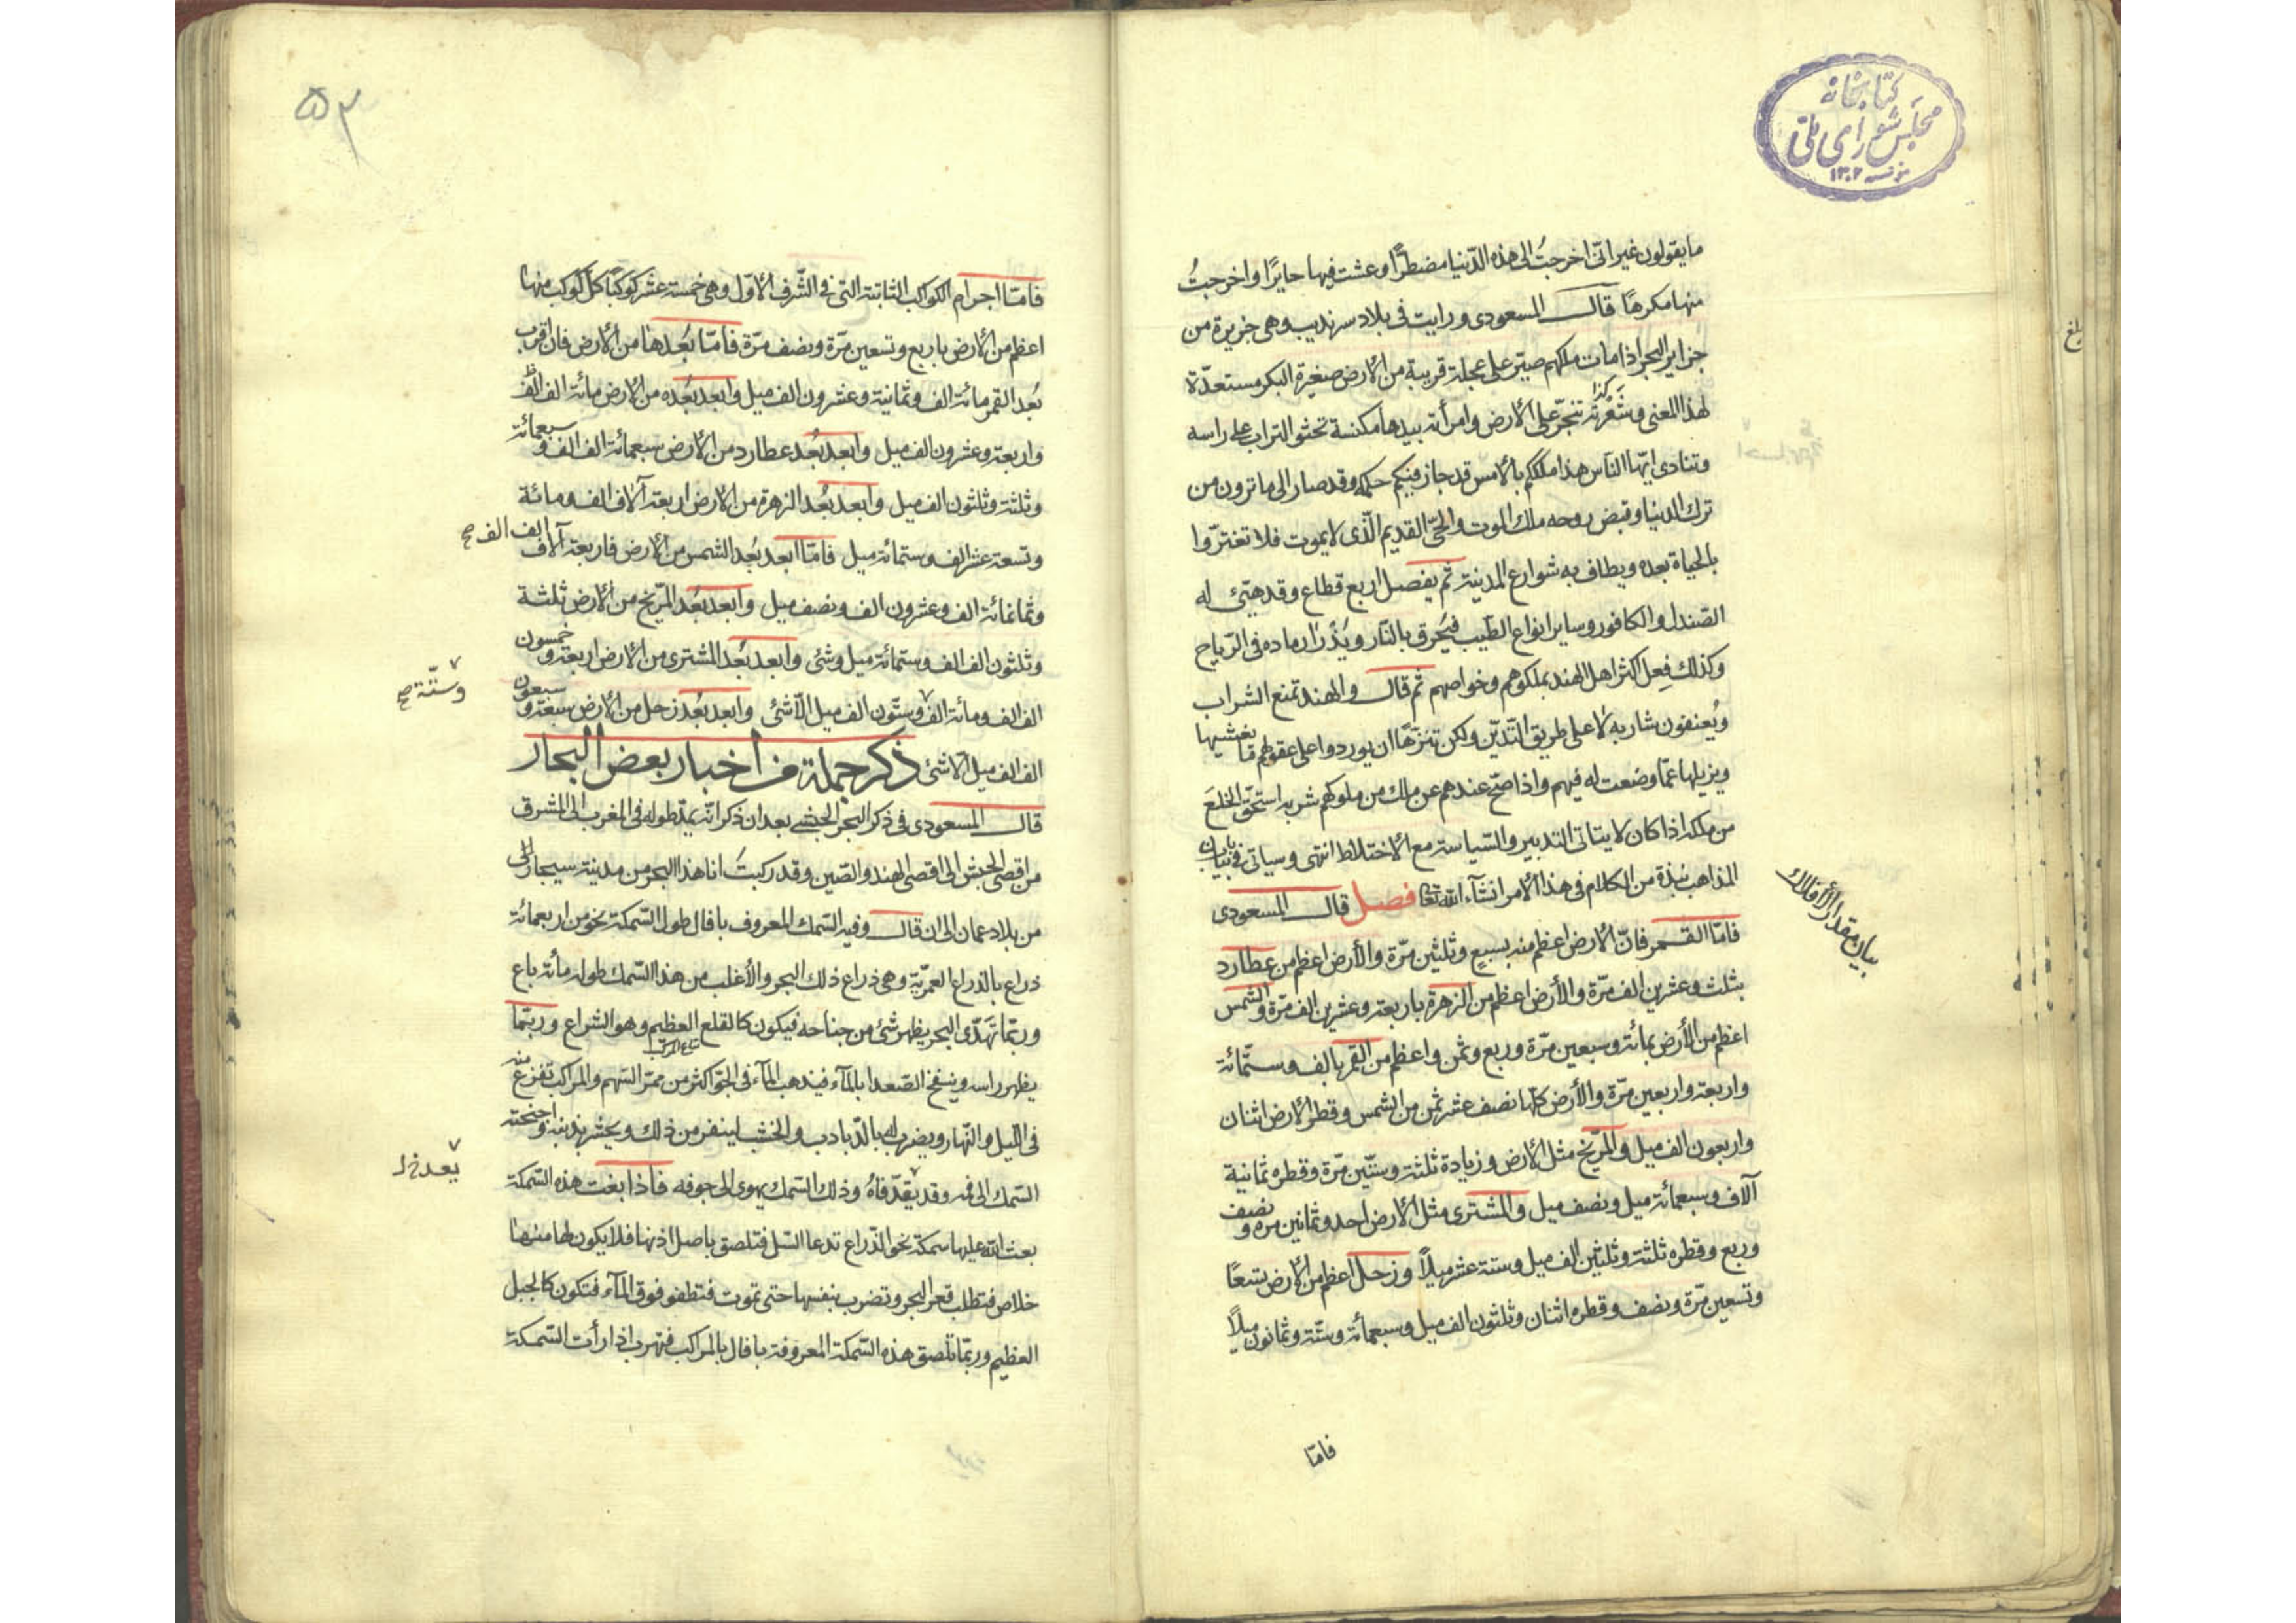 كتابخانه
مجلس شورای ملی
۱۳۰۲
ما يقولون غير انّى اخرجتُ الى هذه الدّنيا مضطرًّا وعشت فيها حايرًا واخرجتُ
منها مكرهًا قال المسعودى ورايت فى بلاد سرنديب وهى جزيرة من
جزاير البحر اذا مات ملكهم صيّر على عجلة قريبة من الارض صغيرة البكر مستعدّة
لهذا المعنى وشعرته تنجرّ على الارض وامرأته بيدها مكنسة تحثو التراب على راسه
وتنادى ايّها الناس هذا ملككم بالامس قد جاز فيكم حكمه وقد صار الى ما ترون من
ترك الدنيا وقبض روحه ملك الموت والحىّ القديم الّذى لا يموت فلا تغترّوا
بالحياة بعده ويطاف به شوارع المدينة ثم يفصل اربع قطاع وقد هيّئ له
الصّندل والكافور وساير انواع الطّيب فيُحرق بالنّار ويُذرّ ارماده فى الرّياح
وكذلك فِعل اكثر اهل الهند بملوكهم وخواصهم ثم قال والهند تمنع الشراب
ويُعنفون شاربه لا على طريق التّديّن ولكن تنزّهًا ان يوردوا على عقولهم ما يغشيها
ويزيلها عمّا وضعت له فيهم واذا صحّ عندهم عن ملك من ملوكهم شربه استحقّ الخلعَ
من ملكه اذا كان لا يتاتى التدبير والسّياسة مع الاختلاط انتهى وسياتى فى بيان
المذاهب نبذة من الكلام فى هذا الامر انشآء الله تعا فصل قال المسعودى
بيان مقدار الافلاك
فامّا القمر فانّ الارض اعظم منه بسبعٍ وثلثين مرّة والأرض اعظم من عطارد
بثلث وعشرين الف مرّة والأرض اعظم من الزهرة باربعة وعشرين الف مرّة والشمس
اعظم من الأرض بمائة وسبعين مرّة وربع وثمن واعظم من القمر بالف وستّمائة
واربعة واربعين مرّة والأرض كلّها نصف عشر ثمن من الشمس وقطر الارض اثنان
واربعون الف ميل والمرّيخ مثل الارض وزيادة ثلثة وستّين مرّة وقطره ثمانية
آلاف وسبعمائة ميل ونصف ميل والمشترى مثل الارض احد وثمانين مرّة ونصف
وربع وقطره ثلثة وثلثين الف ميل وستة عشر ميلًا وزحل اعظم من الارض بتسعًا
وتسعين مرّة ونصف وقطره اثنان وثلثون الف ميل وسبعمائة وستّة وثمانون ميلًا
فامّا
۵۳
فامّا اجرام الكواكب الثابتة التى فى الشّرف الاوّل وهى خمسة عشر كوكبًا كلّ كوكب منها
اعظم من الارض باربع وتسعين مرّة ونصف مرّة فامّا بُعدها من الارض فان اقرب
بُعد القمر مائة الف وثمانية وعشرون الف ميل وابعد بُعده من الارض مائة الف الف
واربعة وعشرون الف ميل وابعد بُعد عطارد من الارض سبعمائة الف الف وسبعمائة
وثلثة وثلثون الف ميل وابعد بُعد الزهرة من الارض اربعة آلاف الف ومائة
وتسعة عشر الف وستمائة ميل فامّا ابعد بُعد الشمس من الارض فاربعة آلاف
الف الف صح
وثمانمائة الف وعشرون الف ونصف ميل وابعد بُعد المرّيخ من الارض ثلثة
وثلثون الف الف وستمائة ميل وشئ وابعد بُعد المشترى من الارض اربعة وخمسون
الف الف ومائة الف وستّون الف ميل الّا شئ وابعد بُعد زحل من الارض سبعة وسبعون
وستّة صح
الف الف ميل الا شئ ذكر جملة من اخبار بعض البحار
قال المسعودى فى ذكر البحر الحبشى بعد ان ذكر انّه يمدّ طوله فى المغرب الى المشرق
من اقصى الحبش الى اقصى الهند والصّين وقد ركبتُ انا هذا البحر من مدينة سيجار الى
من بلاد عمان الى ان قال وفيه السّمك المعروف بافال طول السّمكة نحو من اربعمائة
ذراع بالذراع العمريّة وهى ذراع ذلك البحر والأغلب من هذا السّمك طوله مأئة باع
وربّما تهدّى البحر يظهر شئ من جناحه فيكون كالقلع العظيم وهو الشراع وربّما
يظهر راسه وينفخ الصّعدا بالمآء فيذهب المآء فى الجوّ اكثر من ممرّ السّهم والمراكب تفزع منه
فى اللّيل والنّهار ويضرب له بالدّبادب والخشب لينفر من ذلك ويحشر بذنبه واجنحته
السّمك الى فمه وقد يقدّ فاهُ وذلك السّمك يهوى الى جوفه فاذا بغت هذه السّمكة
يعد خ ل
بعث الله عليها سمكة نحو الذّراع تدعا السّل فتلصق باصل اذنها فلا يكون لها منها
خلاص فتطلب قعر البحر وتضرب بنفسها حتى تموت فتطفو فوق المآء فتكون كالجبل
العظيم وربّما تلصق هذه السّمكة المعروفة بافال بالمراكب فتهرب اذا رأت السّمكة